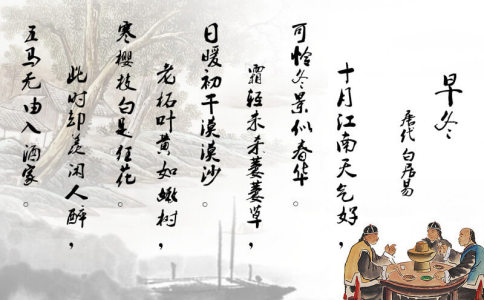 早冬
唐代 白居易
十月江南天气好，
可怜冬景似春华。
霜轻未杀萋萋草，
日暖初干漠漠沙。
老柘叶黄如嫩树，
寒樱枝白是狂花。
此时却羡闲人醉，
五马无由入酒家。